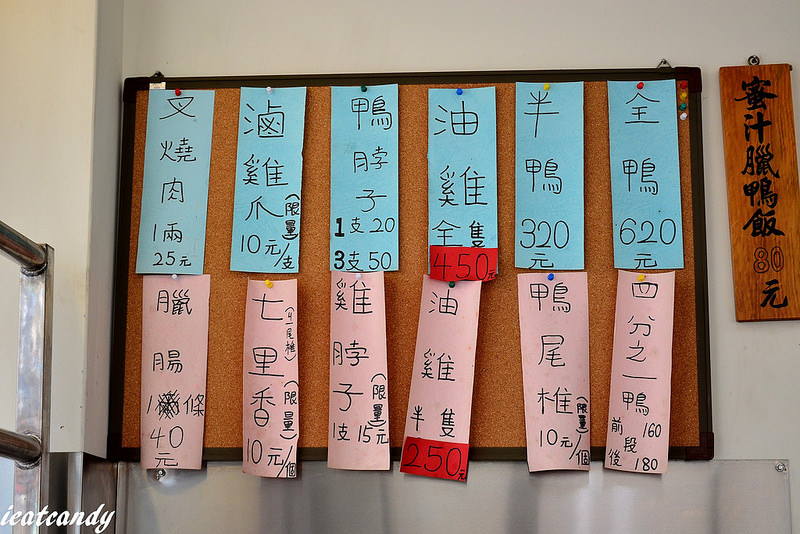 叉燒肉
1兩
25元
滷雞爪
(限量)
10元/支
鴨脖子
1支20
3支50
油雞
全隻
450元
半鴨
320
元
全鴨
620
元
臘腸
1條
40
元
七里香
(限量)
10元/個
雞脖子
(限量)
1支15元
油雞
半隻
250元
鴨尾椎
(限量)
10元/個
四分之一鴨
前段160
後180
蜜汁臘鴨飯80元
ieatcandy